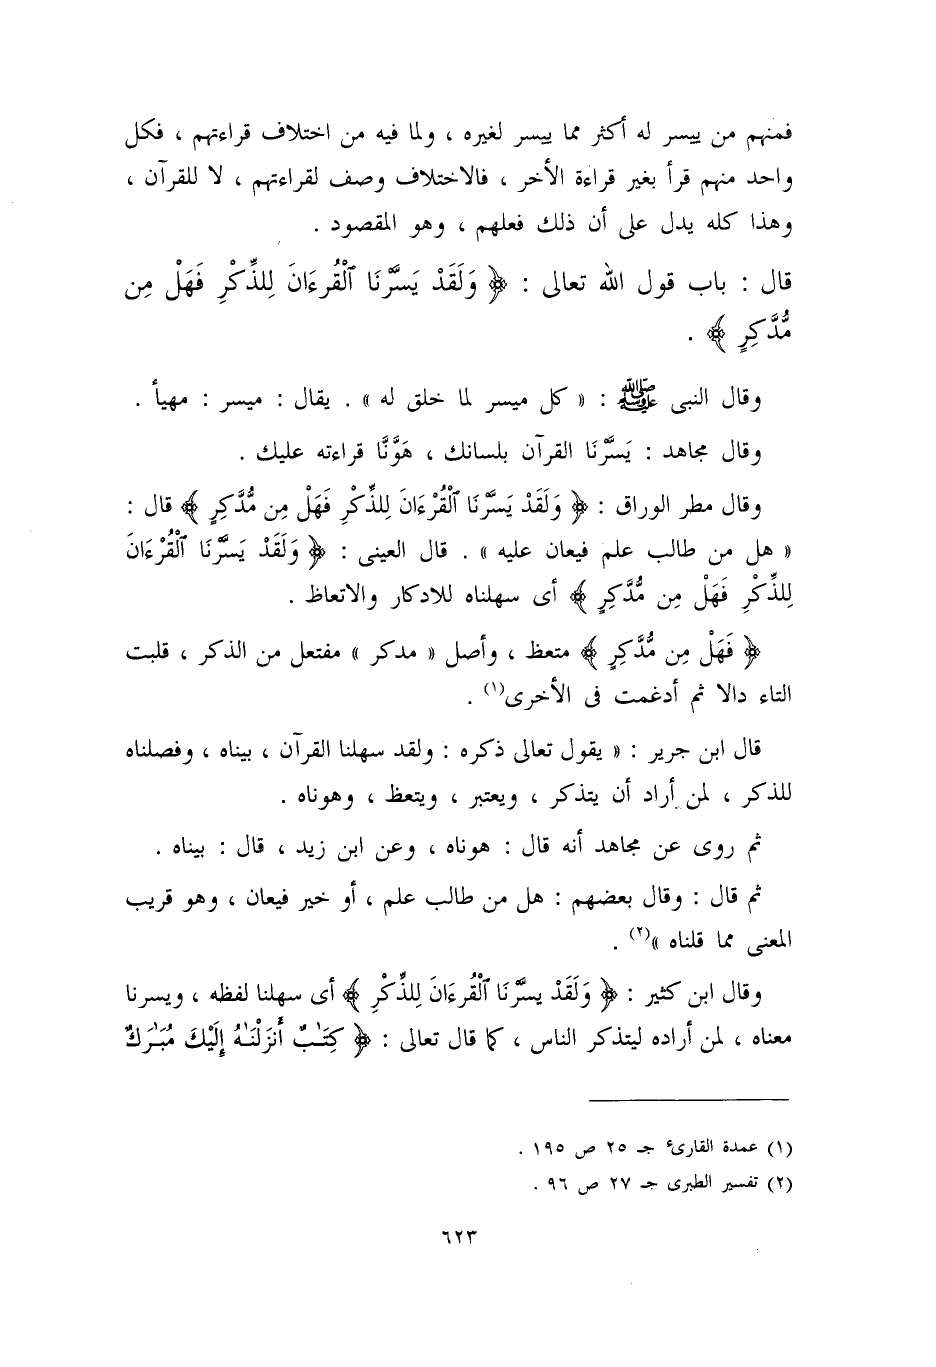 فمنهم من ييسر له أكثر مما ييسر لغيره ، ولما فيه من اختلاف قراءتهم ، فكل
واحد منهم قرأ بغير قراءة الأخر ، فالاختلاف وصف لقراءتهم ، لا للقرآن ،
وهذا كله يدل على أن ذلك فعلهم ، وهو المقصود .
قال : باب قول الله تعالى : ﴿ وَلَقَدْ يَسَّرْنَا ٱلْقُرءَانَ لِلذِّكْرِ فَهَلْ مِن
مُّدَّكِرٍ ﴾ .
وقال النبى ﷺ : « كل ميسر لما خلق له » . يقال : ميسر : مهيأ .
وقال مجاهد : يَسَّرْنَا القرآن بلسانك ، هَوَّنَّا قراءته عليك .
وقال مطر الوراق : ﴿ وَلَقَدْ يَسَّرْنَا ٱلْقُرْءَانَ لِلذِّكْرِ فَهَلْ مِن مُّدَّكِرٍ ﴾ قال :
« هل من طالب علم فيعان عليه » . قال العينى : ﴿ وَلَقَدْ يَسَّرْنَا ٱلْقُرْءَانَ
لِلذِّكْرِ فَهَلْ مِن مُّدَّكِرٍ ﴾ أى سهلناه للادكار والاتعاظ .
﴿ فَهَلْ مِن مُّدَّكِرٍ ﴾ متعظ ، وأصل « مدكر » مفتعل من الذكر ، قلبت
التاء دالا ثم أدغمت فى الأخرى(١) .
قال ابن جرير : « يقول تعالى ذكره : ولقد سهلنا القرآن ، بيناه ، وفصلناه
للذكر ، لمن أراد أن يتذكر ، ويعتبر ، ويتعظ ، وهوناه .
ثم روى عن مجاهد أنه قال : هوناه ، وعن ابن زيد ، قال : بيناه .
ثم قال : وقال بعضهم : هل من طالب علم ، أو خير فيعان ، وهو قريب
المعنى مما قلناه »(٢) .
وقال ابن كثير : ﴿ وَلَقَدْ يسَّرْنَا ٱلْقُرءَانَ لِلذِّكْرِ ﴾ أى سهلنا لفظه ، ويسرنا
معناه ، لمن أراده ليتذكر الناس ، كما قال تعالى : ﴿ كِتَٰبٌ أَنزَلْنَٰهُ إِلَيْكَ مُبَٰرَكٌ
(١) عمدة القارىء جـ ٢٥ ص ١٩٥ .
(٢) تفسير الطبرى جـ ٢٧ ص ٩٦ .
٦٢٣